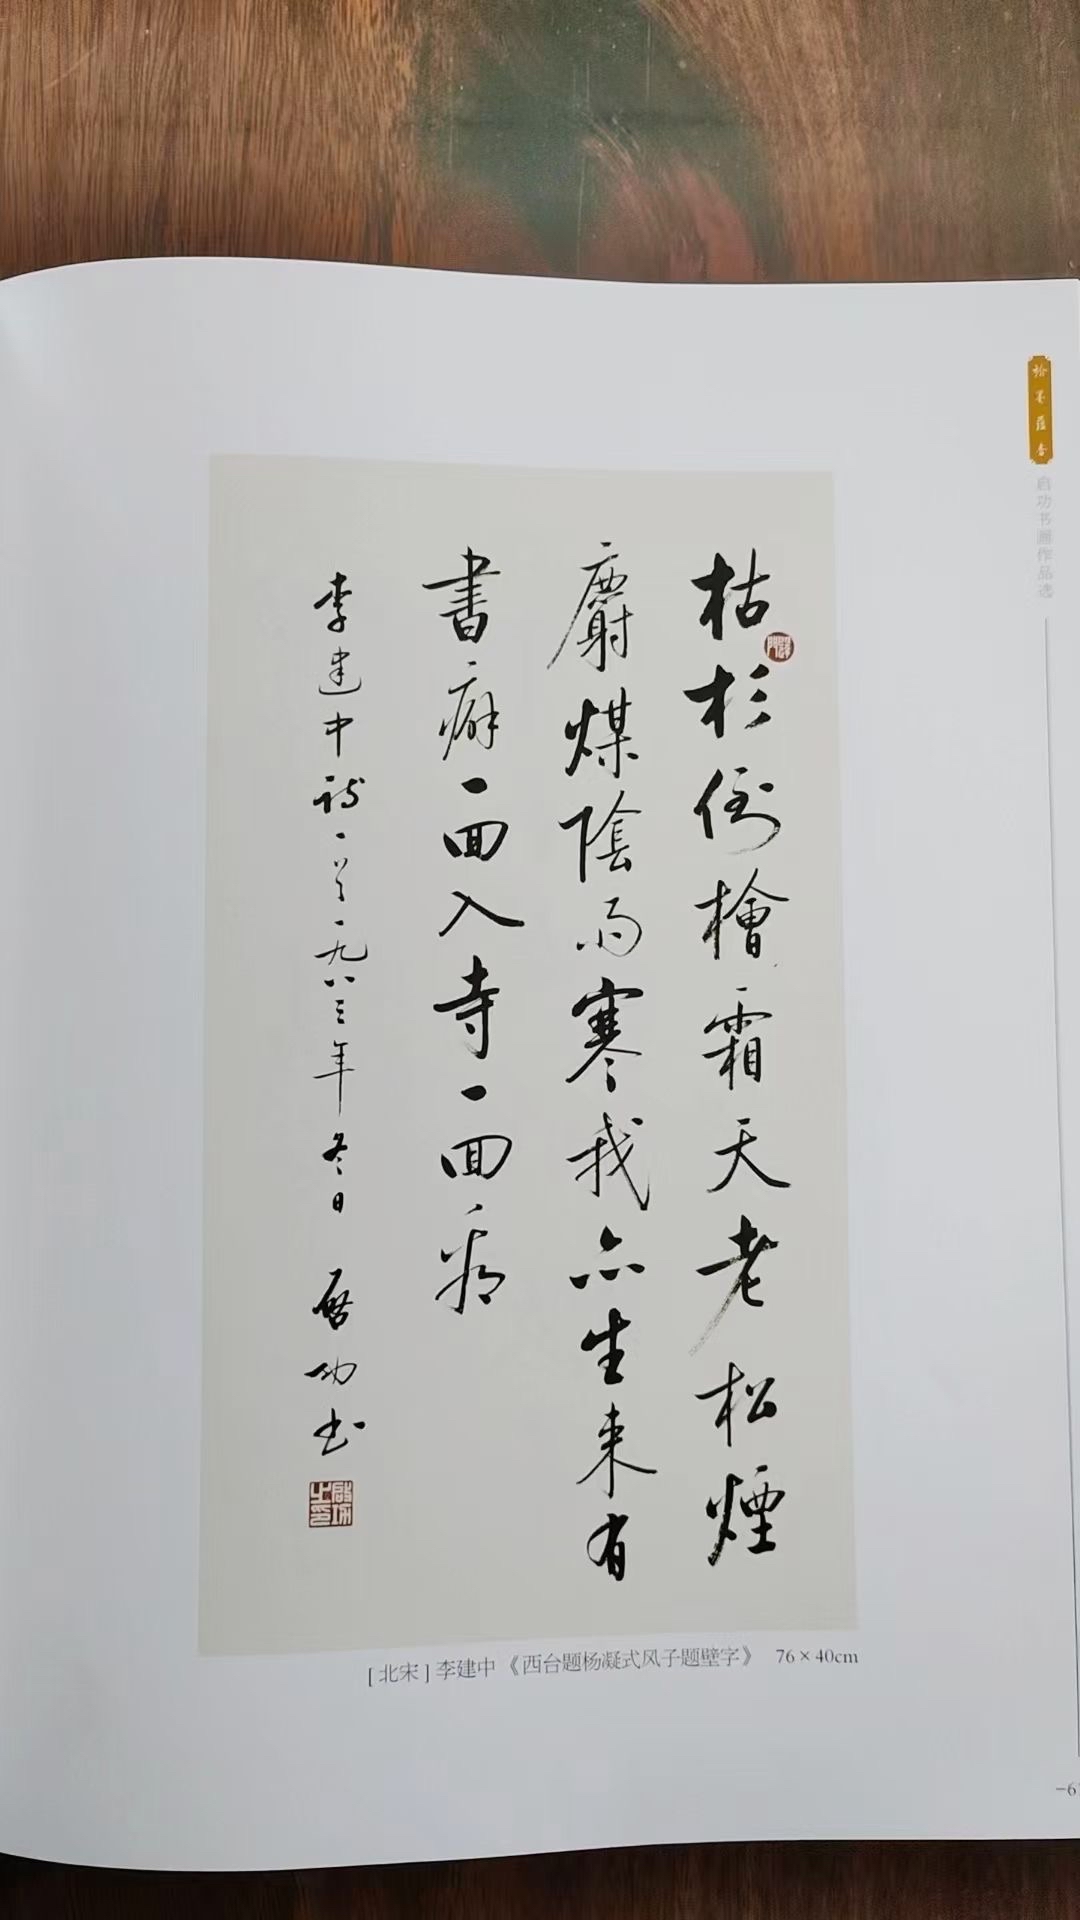 枯杉倒檜霜天老松煙
麝煤陰雨寒我亦生来有
書癖一回入寺一回看
李建中詩一首一九八三年冬日 启功书
启功之印
[北宋] 李建中《西台题杨凝式风子题壁字》 76×40cm
启功书画作品选